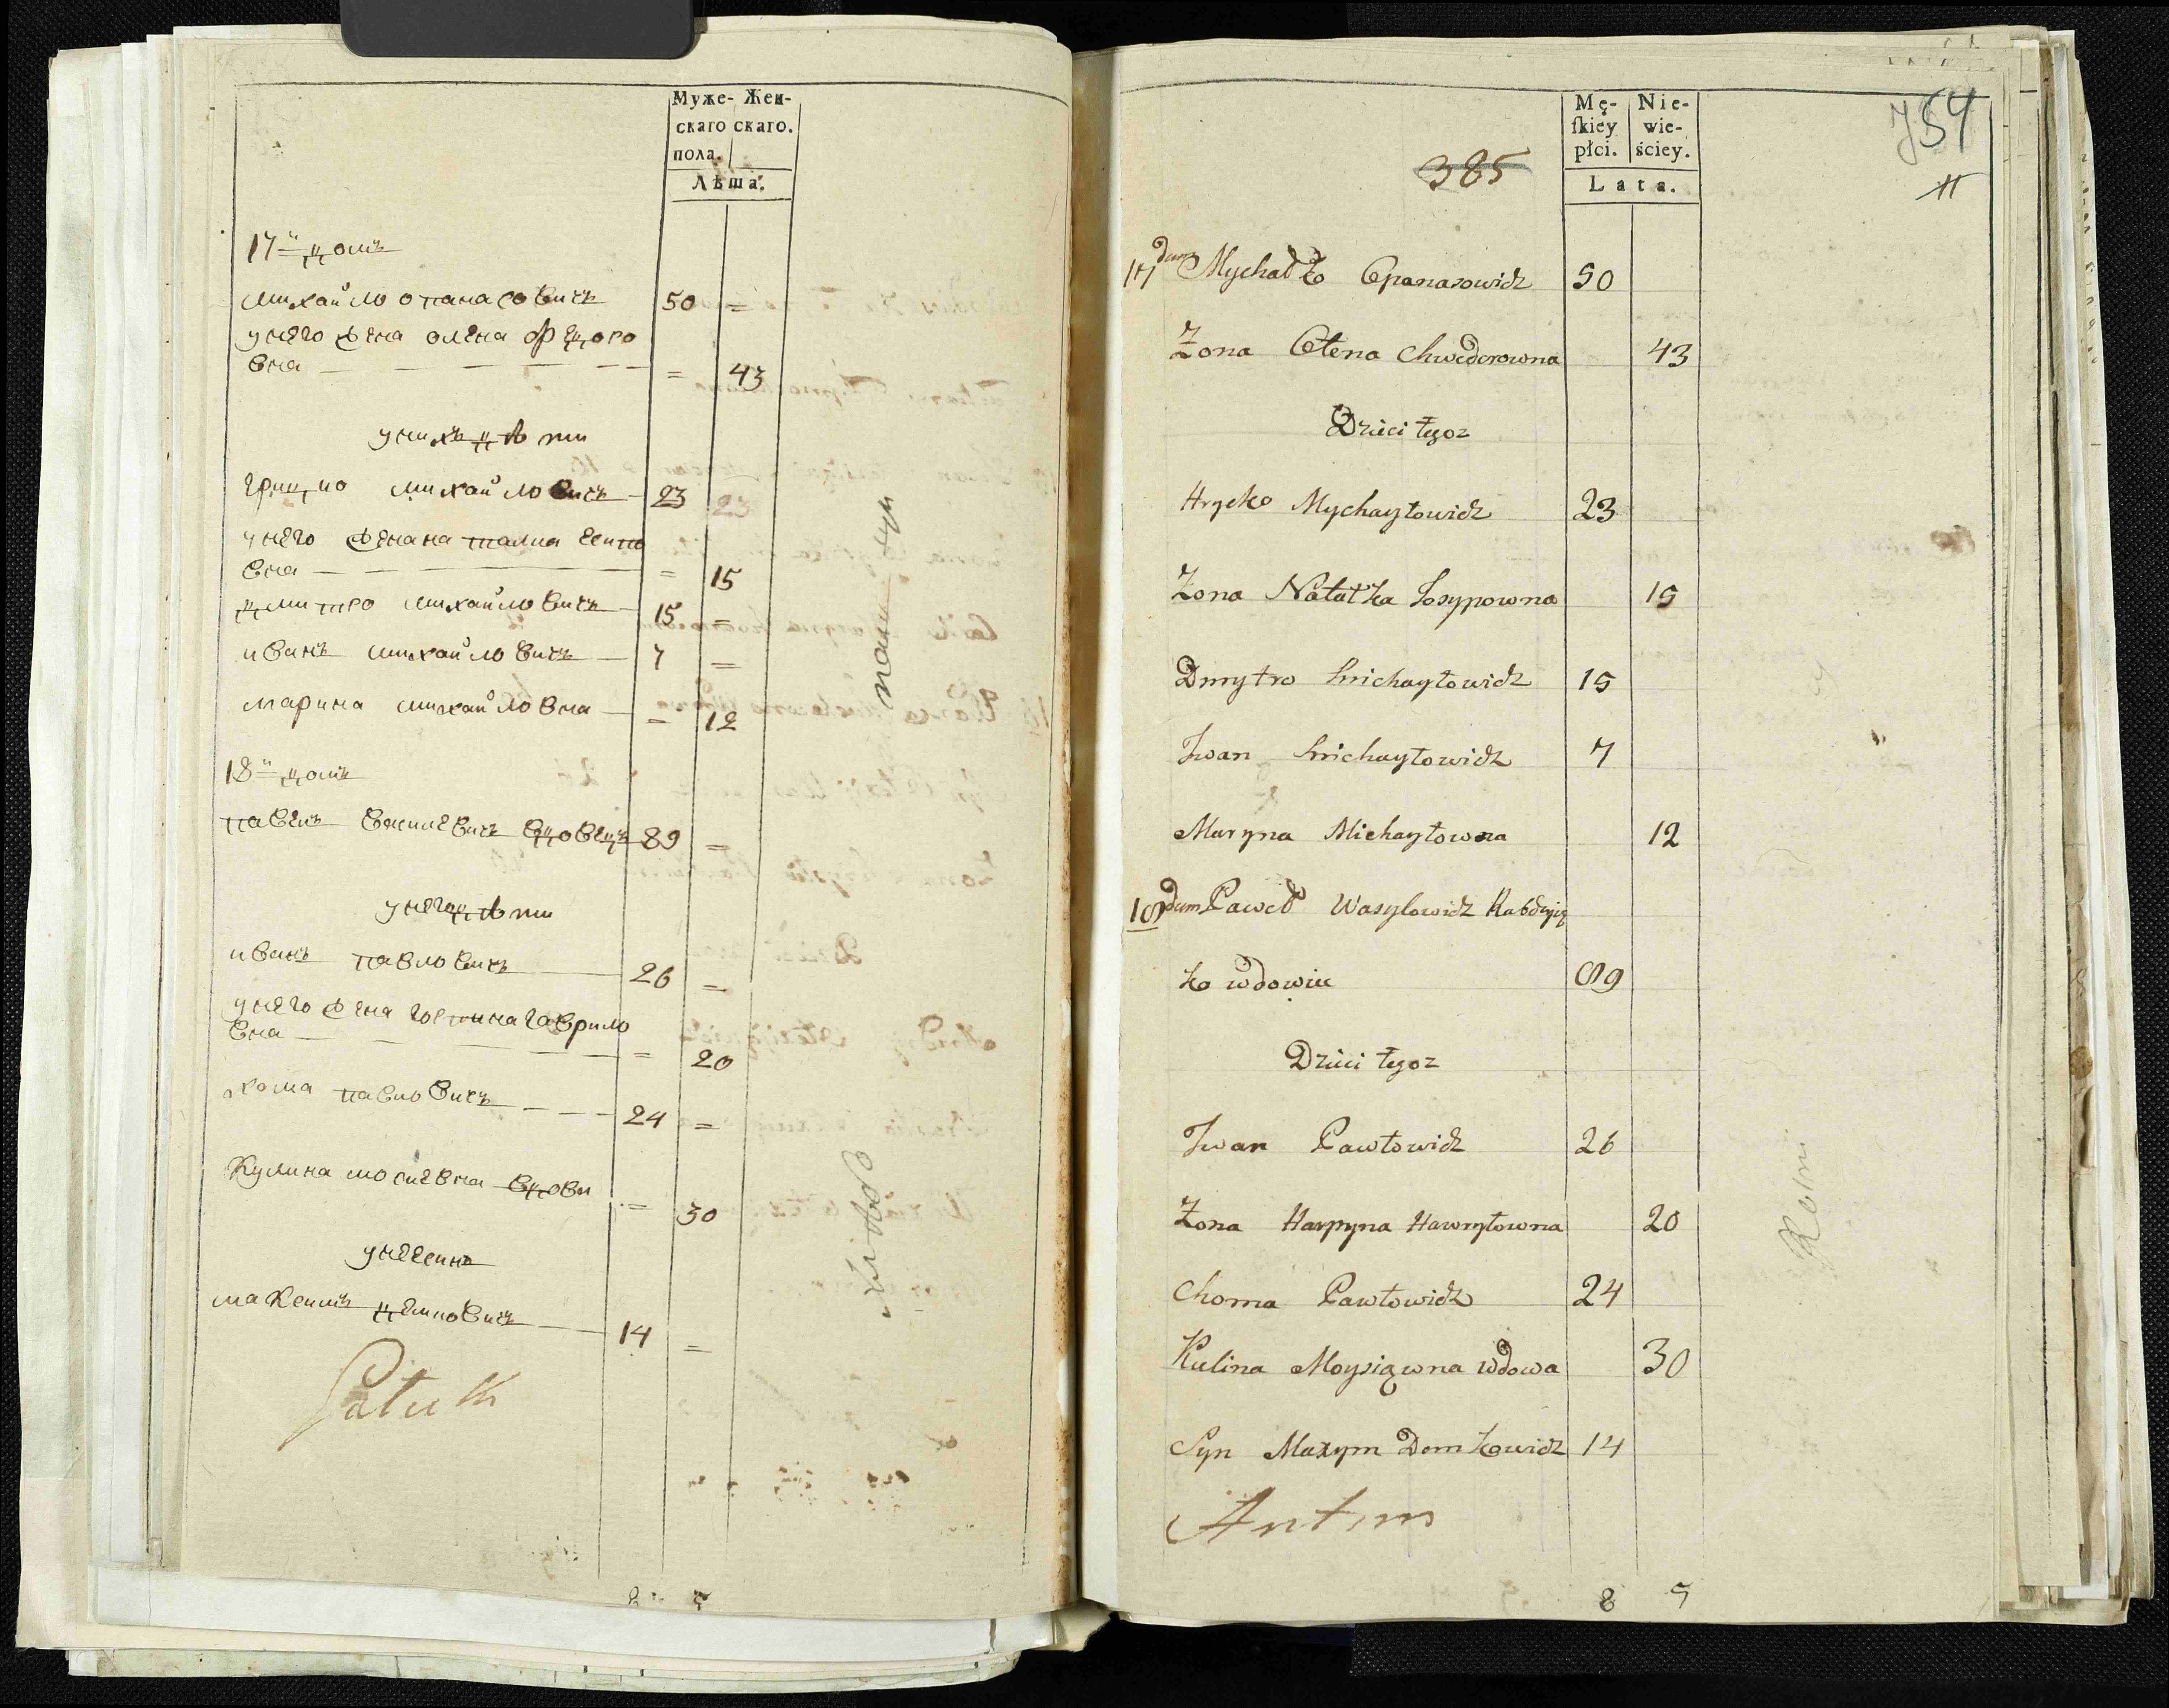 Муже- Жен-
скаго скаго.
пола.
Лѣта.
17й домъ
михайло опанасовичъ 50 =
у него жена олена фѣдоро
вна = 43
у нихъ дѣти
грицко михайловичъ 23
у него жена наталиа есипо
вна = 15
дмитро михайловичъ 15 =
иванъ михайловичъ 7 =
марина михайловна = 12
18й домъ
павелъ василевичъ вдовецъ 89 =
у него дѣти
иванъ павловичъ 26 =
у него жена горпина гаврило
вна = 20
хома павловичъ 24 =
Кулина мосиевна вдова = 30
у нее синъ
максимъ демковичъ 14 =
8 5
Mę- Nie-
skiey wie-
płci. ściey.
Lata.
385
754
17 dum Mychałko Opanasowicz 50
Zona Ołena Chwedorowna 43
Dzieci tegoz
Hrycko Mychayłowicz 23
Zona Natałka Josypowna 15
Dmytro Michayłowicz 15
Iwan Michayłowicz 7
Maryna Michayłowna 12
18 dum Paweł Wasylowicz
ko wdowiec 89
Dzieci tegoz
Iwan Pawłowicz 26
Zona Harpyna Hawryłowna 20
Choma Pawłowicz 24
Kulina Moysiąwna wdowa 30
Syn Maxym Demkowicz 14
8 5